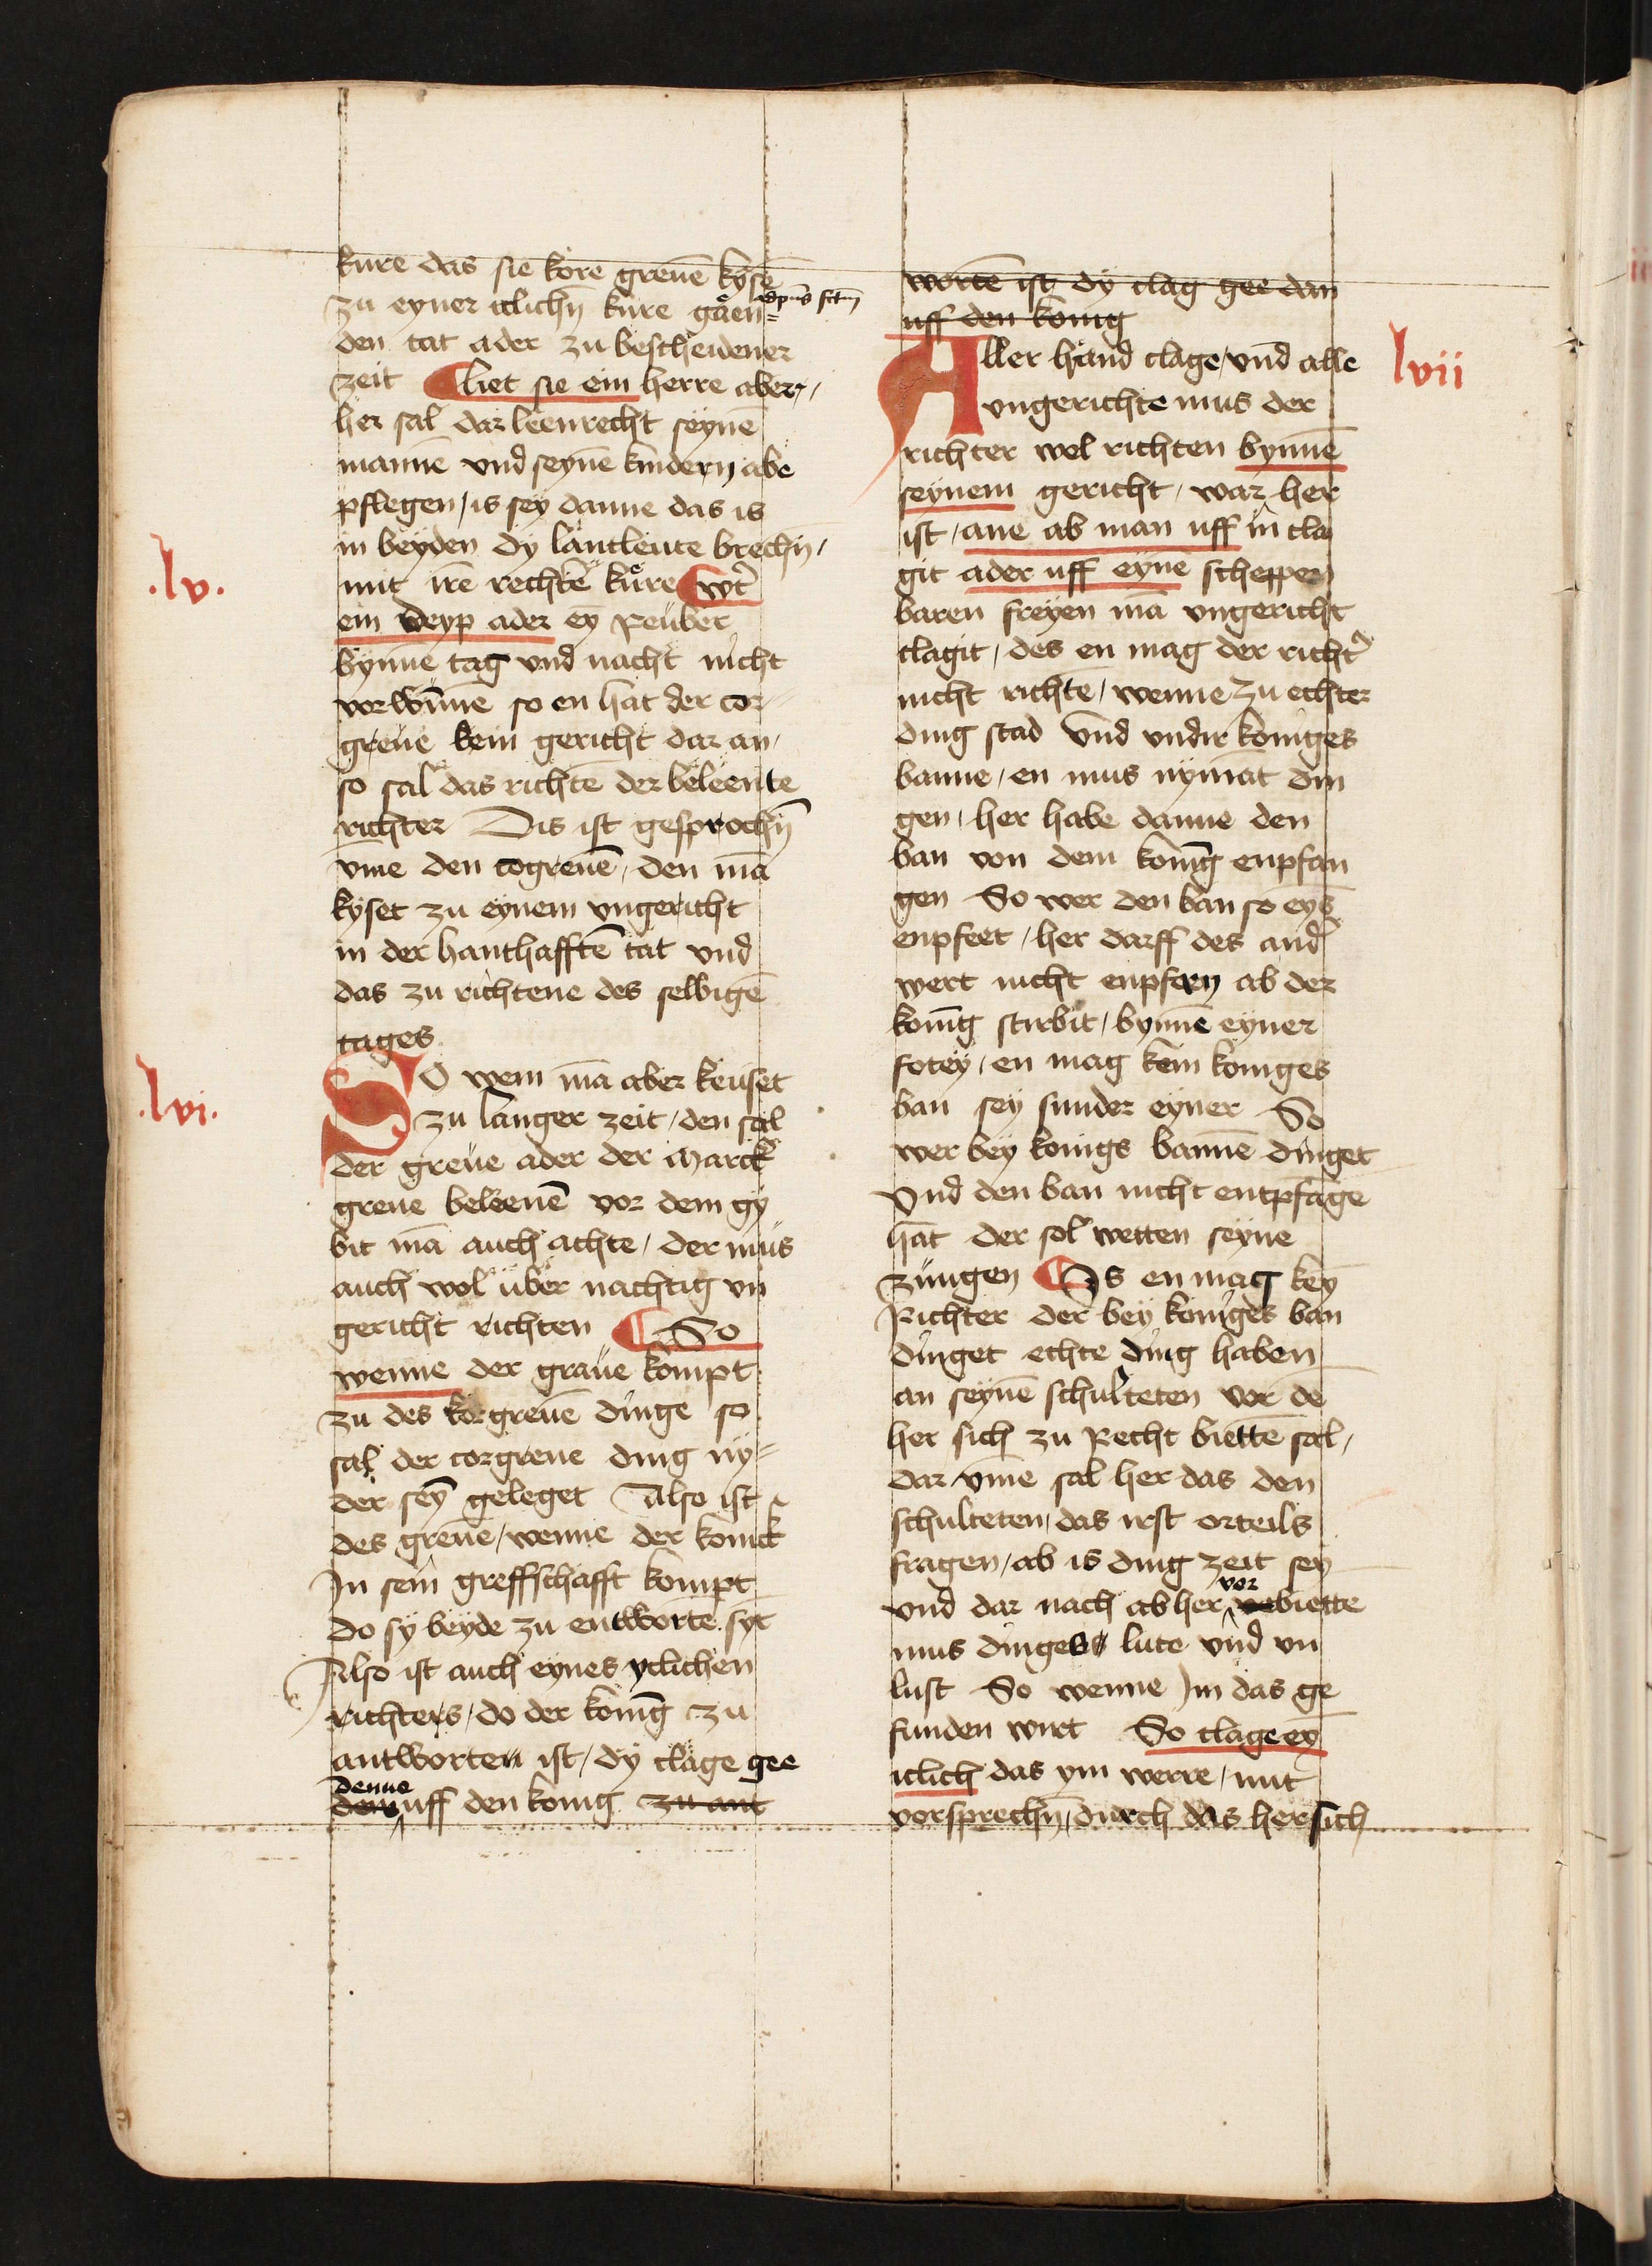 kure das sie kore greuē kyse
zu eyner itlichn̄ kure gaen=
den tat ader zu bescheidener
zeit liet sie ein herre aber,
her sal dar leenrecht seynē
manne vnd seynē kindern abe
pflegen, is sey danne das is
in beyden dy lantleute brechn̄,
mit irē rechtē kure wt̕
.lv.
ein deyp ader ey̅ reuber
bynnē tag vnd nacht nicht
vorwūne so en hat der cor-
greue kein gericht dar an,
so sal das richtē der beleente
richter Dis ist gesprochn̄
vme den cogreuē, den mā
kyset zu eynem vngericht
in der hanthafftē tat vnd
das zu richtene des selbigē
tages
.lvi.
SO wem mā aber keuset
zu langer zeit, den sal
der greue ader der marck
greue beleenē vor dem gy
bit mā auch achte, der mus
auch wol uber nachtig vn
gericht richten So
wenne der graue kompt
zu des korgreuē dinge so
sal der corgreue ding ny=
der sey̅ geleget Also ist
des greuē, wenne der konick
In sein greffschafft kompt
do sy beyde zu entworte syt
Also ist auch eynes yclichen
richters, do der konig̅ zu
antworten ist, dy clage gee
denne
uff den konig zu ant
wortē ist dy clag gee dan
uff den konig
lvii
Aller hand clage, vnd alle
vngerichte mus der
richter wol richten bynnē
seynem gericht, war her
ist, ane ab man uff in cla
git ader uff eynē scheppen
baren freyen mā vngericht
clagit, des en mag der richt̕
nicht richtē, wenne zu echter
ding stad vnd vndir koniges
banne, en mus nymāt din
gen, her habe danne den
ban von dem konig̅ enpfan
gen So wer den ban so eys̅
enpfeet, her darff des and̕
wert nicht enpfern ab der
konig̅ stirbit, bynnē eyner
fotey, en mag kein koniges
ban sey sunder eyner So
wer bey konigs bannē dinget
Vnd den ban nicht entpfāge
hat der sol wetten seyne
zungen Is en mag key̅
Richter der bey koniges ban
dinget echte ding haben
an seynē schulteten vor dē
her sich zu recht biettē sal,
dar vm̄e sal her das den
schulteten, das irst orteils
fragen, ab is ding zeit sey
vor
vnd dar nach ab her biette
mus dinges lute vnd vn
lust So wenne Im das ge
funden wirt So clage ey̅
itlich das ym werre, mit
vorsprechn̄, durch das her sich